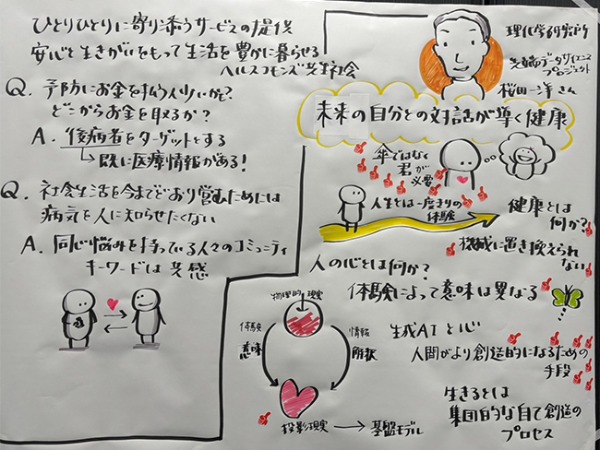 ひとりひとりに寄り添うサービスの提供
安心と生きがいをもって生活を豊かに暮らせる
ヘルスコモンズ共生社会
Q. 予防にお金を払う人少いかも?
どこからお金を取るか?
A. 後病者をターゲットとする
既に医療情報がある!
Q. 社会生活を今までどおり営むためには
病気を人に知らせたくない
A. 同じ悩みを持っている人々のコミュニティ
キーワードは共感
理化学研究所
データサイエンス
プロジェクト
桜田一洋さん
未来の自分との対話が導く健康
傘ではなく
君が
必要
人生とは一度きりの
体験
健康とは
何か?
機械に置き換えられ
ない
人の心とは何か?
体験によって意味は異なる
物理的現実
体験
意味
情報
解釈
投影現実
基盤モデル
生成AIと心
人間がより創造的になるための
手段
生きるとは
集団的な自己創造の
プロセス